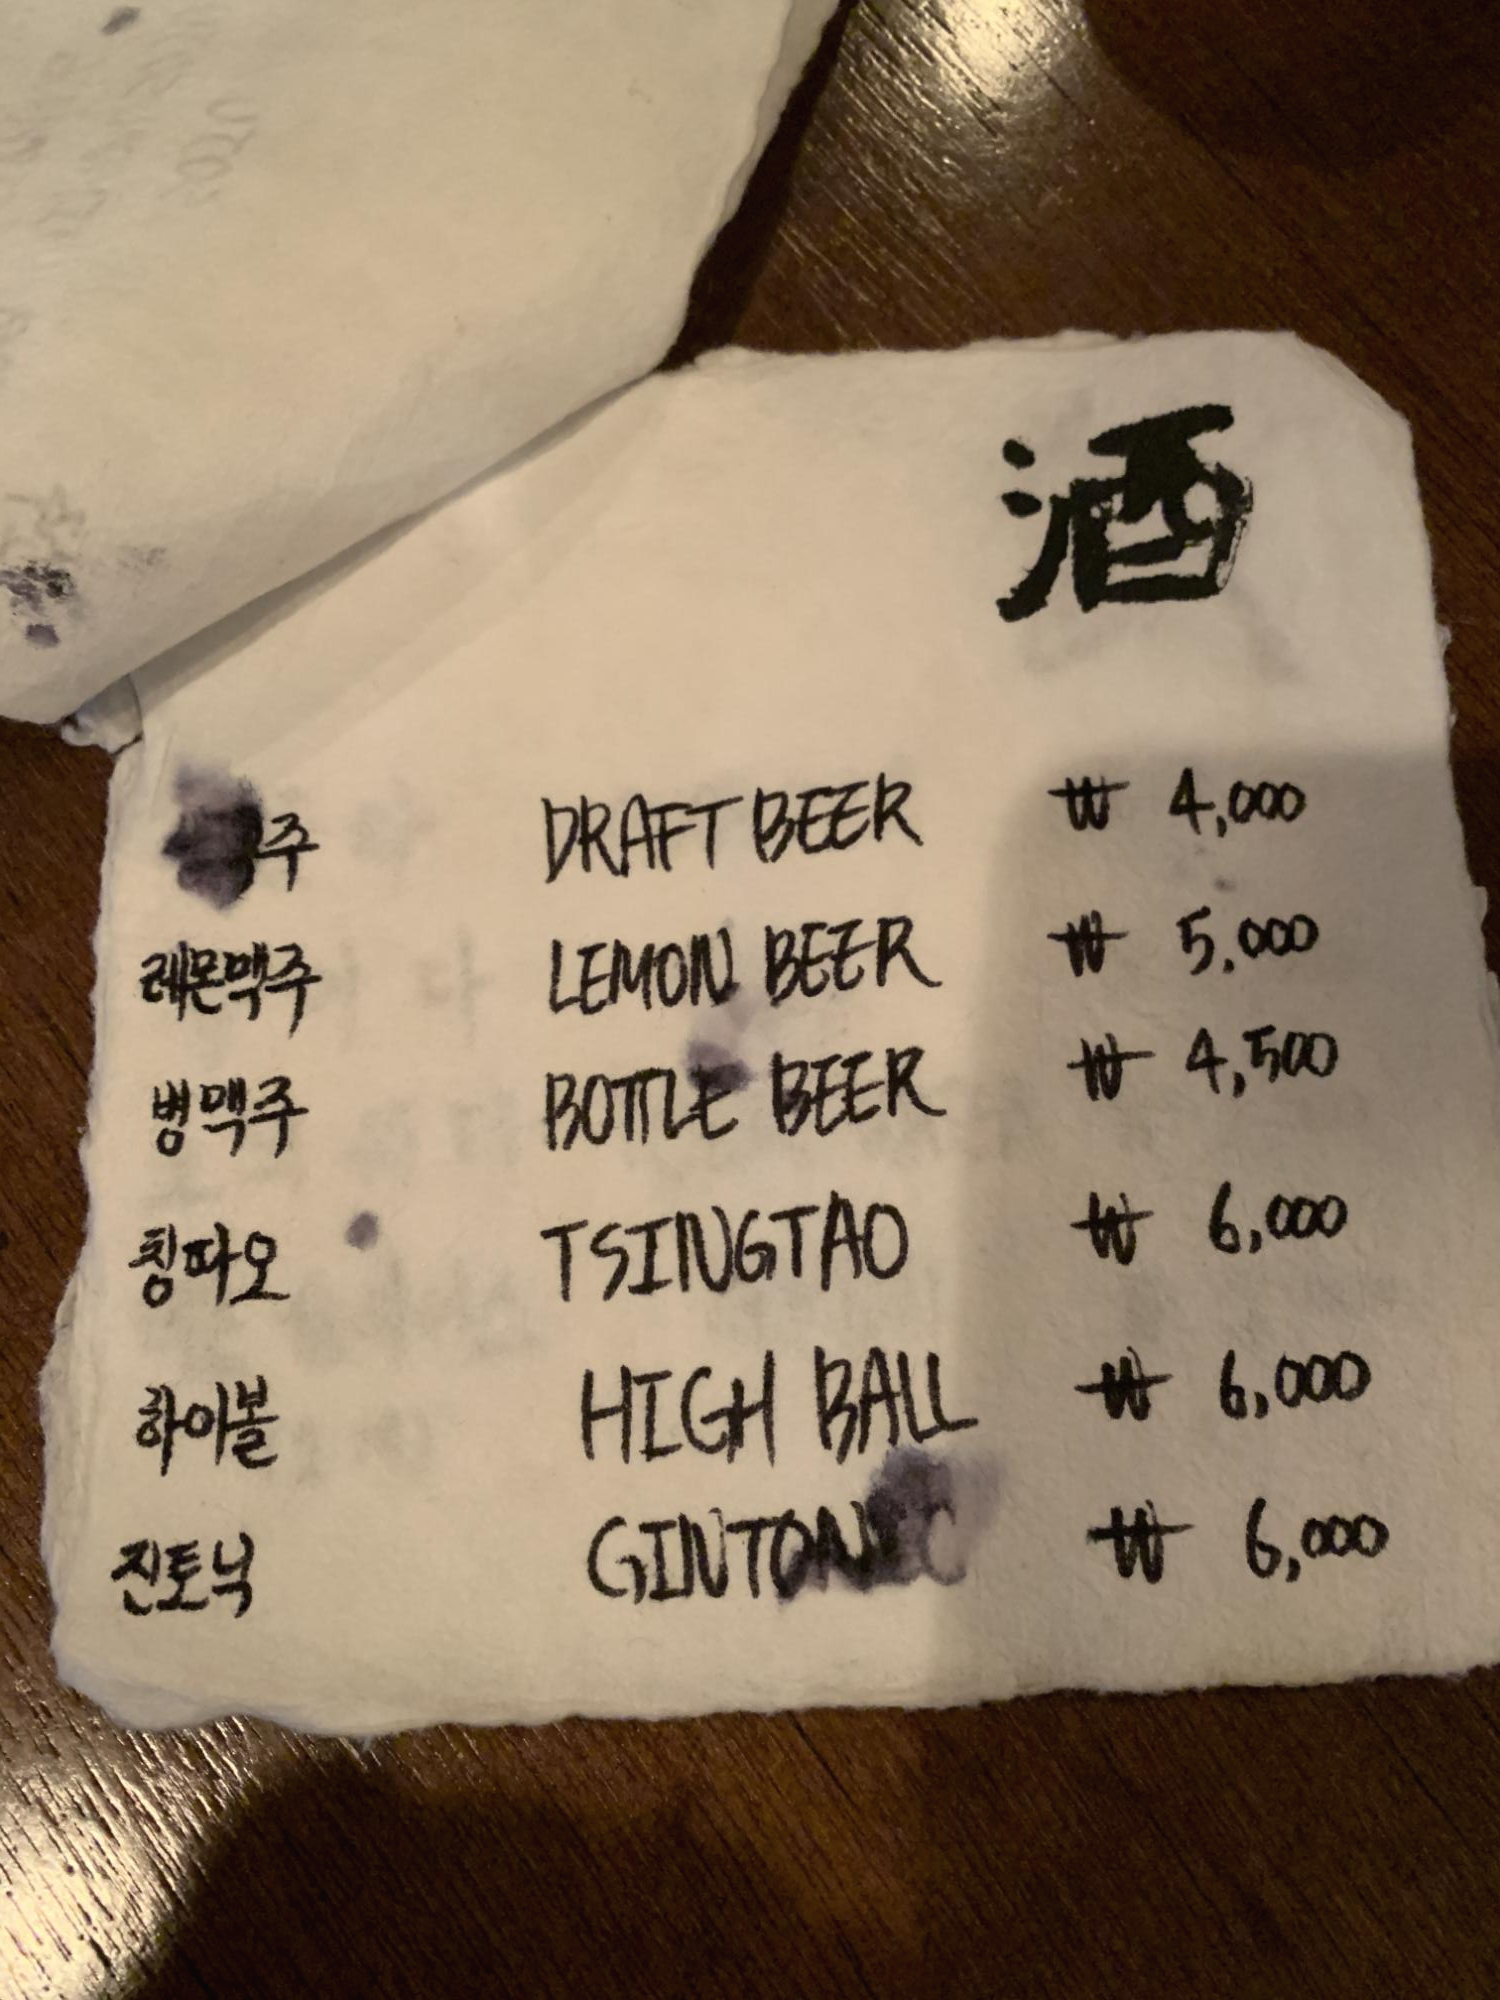 酒
DRAFT BEER ₩ 4,000
레몬맥주 LEMON BEER ₩ 5,000
병맥주 BOTTLE BEER ₩ 4,500
칭따오 TSINGTAO ₩ 6,000
하이볼 HIGH BALL ₩ 6,000
진토닉 GINTONIC ₩ 6,000